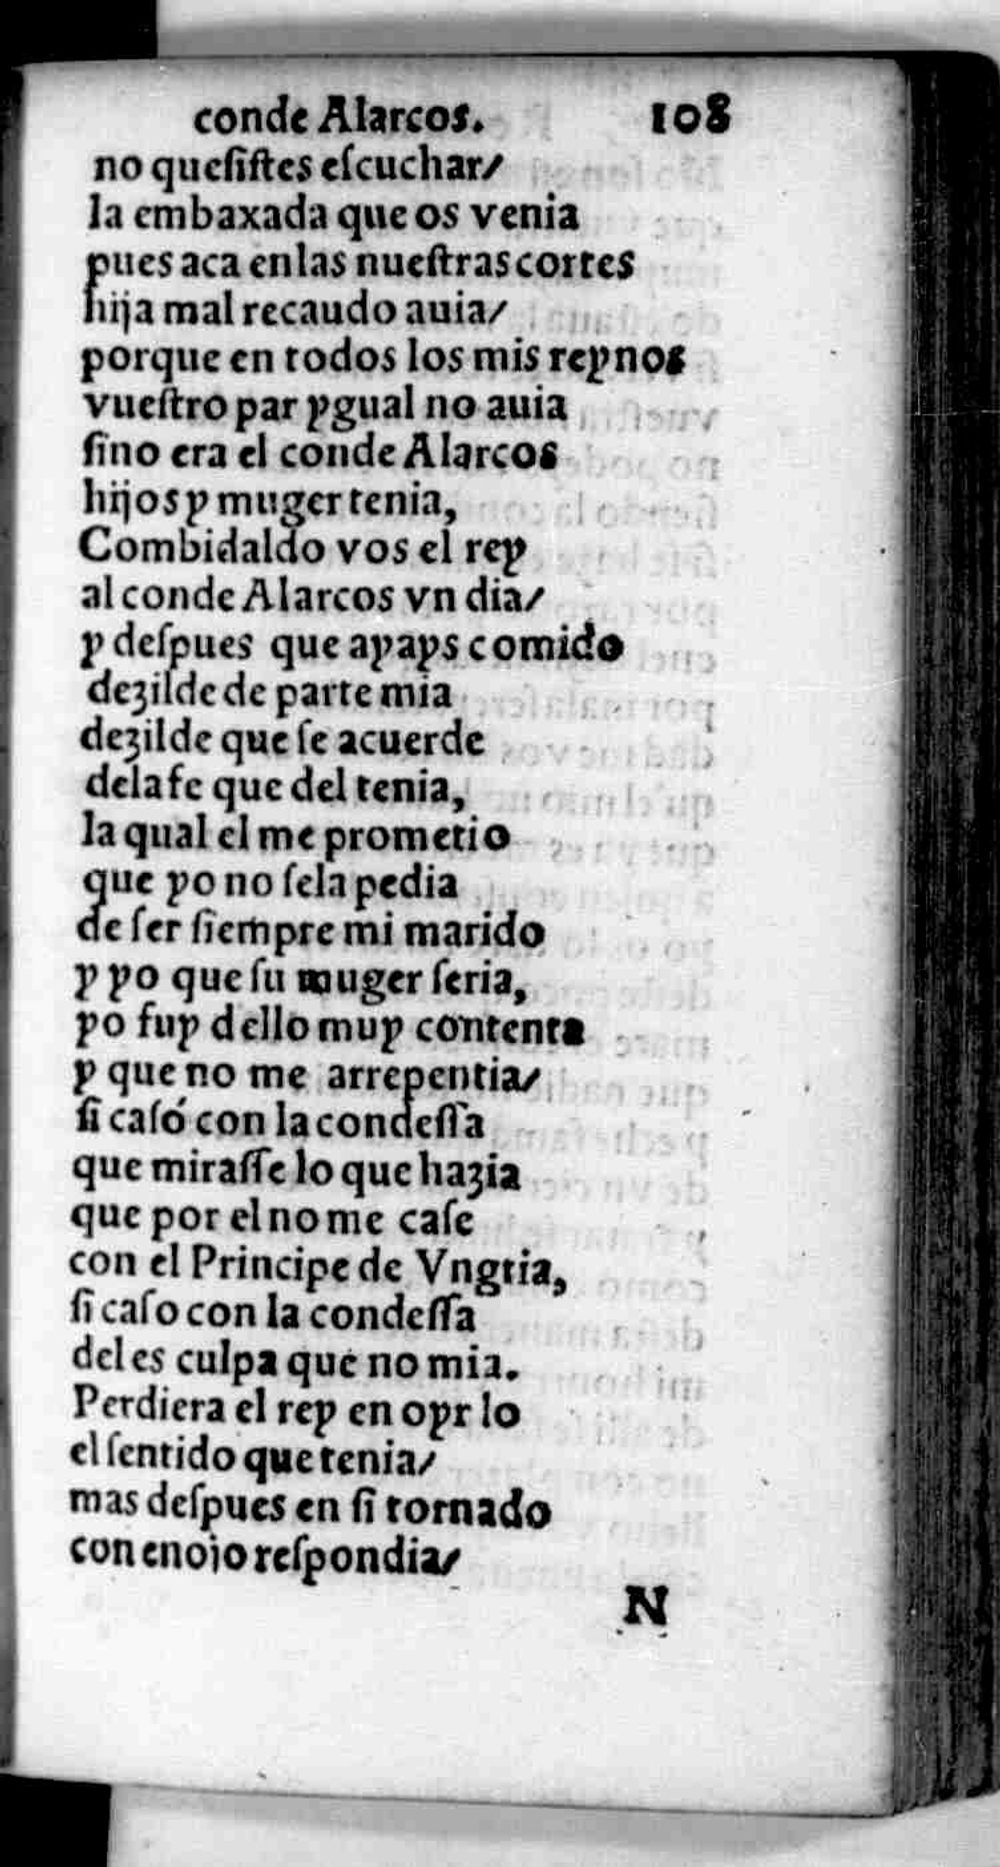 conde Alarcos. 108
no queſiſtes eſcuchar/
la embaxada que os venia
pues aca enlas nueſtras cortes
hija mal recaudo auia/
porque en todos los mis reynos
vueſtro par ygual no auia
ſino era el conde Alarcos
hijos y muger tenia,
Combidaldo vos el rey
al conde Alarcos vn dia/
y deſpues que ayays comido
dezilde de parte mia
dezilde que ſe acuerde
dela fe que del tenia,
la qual el me prometio
que yo no ſela pedia
de ſer ſiempre mi marido
y yo que ſu muger ſeria,
yo fuy dello muy contenta
y que no me arrepentia/
ſi caſó con la condeſſa
que miraſſe lo que hazia
que por el no me caſe
con el Principe de Vngria,
ſi caſo con la condeſſa
del es culpa que no mia.
Perdiera el rey en oyr lo
el ſentido que tenia/
mas deſpues en ſi tornado
con enojo reſpondia/
N